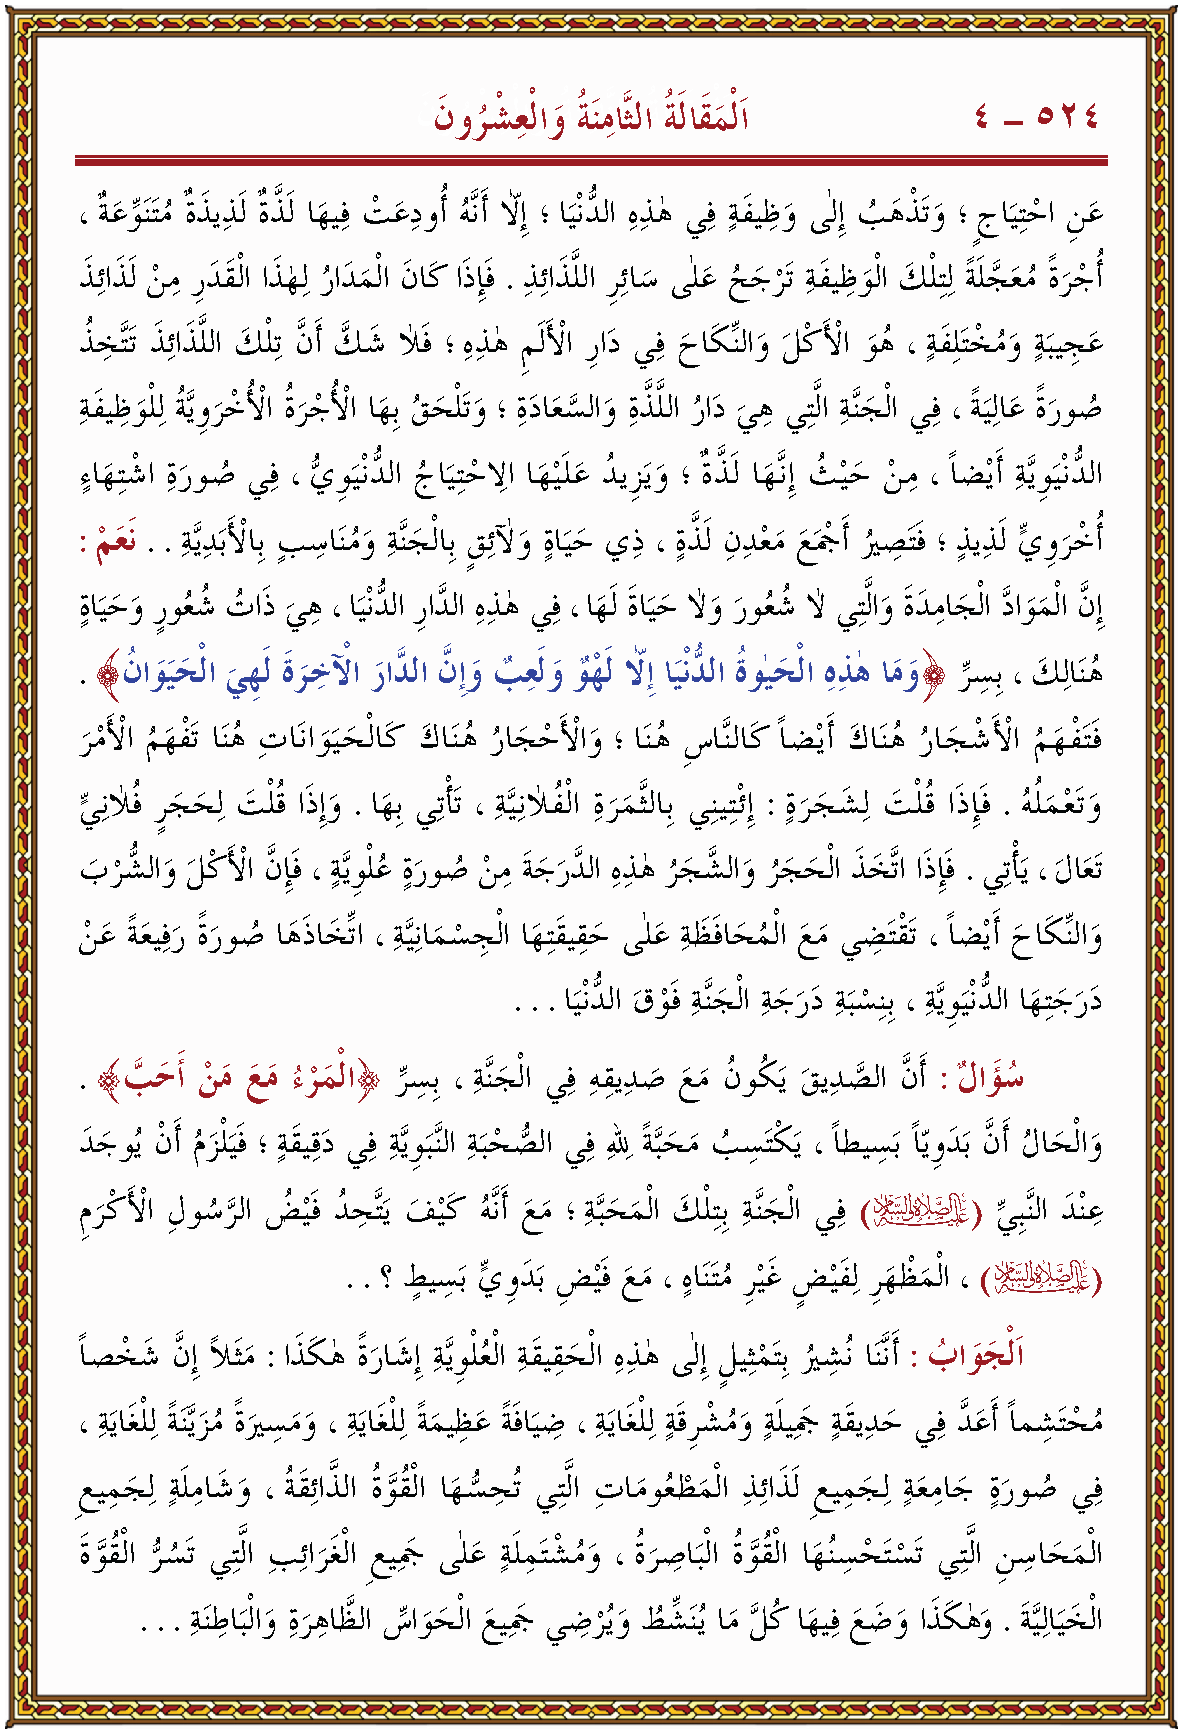 ٥٢٤ – ٤ اَلْمَقَالَةُ الثَّامِنَةُ وَالْعِشْرُونَ
عَنِ احْتِيَاجٍ ؛ وَتَذْهَبُ إِلٰى وَظِيفَةٍ فِي هٰذِهِ الدُّنْيَا ؛ إِلّاٰ أَنَّهُ أُودِعَتْ فِيهَا لَذَّةٌ لَذِيذَةٌ مُتَنَوِّعَةٌ ،
أُجْرَةً مُعَجَّلَةً لِتِلْكَ الْوَظِيفَةِ تَرْجَحُ عَلٰى سَائِرِ اللَّذَائِذِ . فَإِذَا كَانَ الْمَدَارُ لِهٰذَا الْقَدَرِ مِنْ لَذَائِذَ
عَجِيبَةٍ وَمُخْتَلِفَةٍ ، هُوَ الْأَكْلَ وَالنِّكَاحَ فِي دَارِ الْأَلَمِ هٰذِهِ ؛ فَلاٰ شَكَّ أَنَّ تِلْكَ اللَّذَائِذَ تَتَّخِذُ
صُورَةً عَالِيَةً ، فِي الْجَنَّةِ الَّتِي هِيَ دَارُ اللَّذَّةِ وَالسَّعَادَةِ ؛ وَتَلْحَقُ بِهَا الْأُجْرَةُ الْأُخْرَوِيَّةُ لِلْوَظِيفَةِ
الدُّنْيَوِيَّةِ أَيْضاً ، مِنْ حَيْثُ إِنَّهَا لَذَّةٌ ؛ وَيَزِيدُ عَلَيْهَا الِاحْتِيَاجُ الدُّنْيَوِيُّ ، فِي صُورَةِ اشْتِهَاءٍ
أُخْرَوِيٍّ لَذِيذٍ ؛ فَتَصِيرُ أَجْمَعَ مَعْدِنِ لَذَّةٍ ، ذِي حَيَاةٍ وَاٰلَائِقٍ بِالْجَنَّةِ وَمُنَاسِبٍ بِالْأَبَدِيَّةِ . . نَعَمْ :
إِنَّ الْمَوَادَّ الْجَامِدَةَ وَالَّتِي لاٰ شُعُورَ وَلاٰ حَيَاةَ لَهَا ، فِي هٰذِهِ الدَّارِ الدُّنْيَا ، هِيَ ذَاتُ شُعُورٍ وَحَيَاةٍ
هُنَالِكَ ، بِسِرِّ ﴿وَمَا هٰذِهِ الْحَيٰوةُ الدُّنْيَا إِلّاٰ لَهْوٌ وَلَعِبٌ وَإِنَّ الدَّارَ الْآخِرَةَ لَهِيَ الْحَيَوَانُ﴾ .
فَتَفْهَمُ الْأَشْجَارُ هُنَاكَ أَيْضاً كَالنَّاسِ هُنَا ؛ وَالْأَحْجَارُ هُنَاكَ كَالْحَيَوَانَاتِ هُنَا تَفْهَمُ الْأَمْرَ
وَتَعْمَلُهُ . فَإِذَا قُلْتَ لِشَجَرَةٍ : إِئْتِينِي بِالثَّمَرَةِ الْفُلاٰنِيَّةِ ، تَأْتِي بِهَا . وَإِذَا قُلْتَ لِحَجَرٍ فُلاٰنِيٍّ
تَعَالَ ، يَأْتِي . فَإِذَا اتَّخَذَ الْحَجَرُ وَالشَّجَرُ هٰذِهِ الدَّرَجَةَ مِنْ صُورَةٍ عُلْوِيَّةٍ ، فَإِنَّ الْأَكْلَ وَالشُّرْبَ
وَالنِّكَاحَ أَيْضاً ، تَقْتَضِي مَعَ الْمُحَافَظَةِ عَلٰى حَقِيقَتِهَا الْجِسْمَانِيَّةِ ، اتِّخَاذَهَا صُورَةً رَفِيعَةً عَنْ
دَرَجَتِهَا الدُّنْيَوِيَّةِ ، بِنِسْبَةِ دَرَجَةِ الْجَنَّةِ فَوْقَ الدُّنْيَا . . .
سُؤَالٌ : أَنَّ الصَّدِيقَ يَكُونُ مَعَ صَدِيقِهِ فِي الْجَنَّةِ ، بِسِرِّ ﴿الْمَرْءُ مَعَ مَنْ أَحَبَّ﴾ .
وَالْحَالُ أَنَّ بَدَوِيّاً بَسِيطاً ، يَكْتَسِبُ مَحَبَّةً لِلّٰهِ فِي الصُّحْبَةِ النَّبَوِيَّةِ فِي دَقِيقَةٍ ؛ فَيَلْزَمُ أَنْ يُوجَدَ
عِنْدَ النَّبِيِّ (عليه الصلاة والسلام) فِي الْجَنَّةِ بِتِلْكَ الْمَحَبَّةِ ؛ مَعَ أَنَّهُ كَيْفَ يَتَّحِدُ فَيْضُ الرَّسُولِ الْأَكْرَمِ
(عليه الصلاة والسلام) ، الْمَظْهَرِ لِفَيْضٍ غَيْرِ مُتَنَاهٍ ، مَعَ فَيْضِ بَدَوِيٍّ بَسِيطٍ ؟ . .
اَلْجَوَابُ : أَنَّنَا نُشِيرُ بِتَمْثِيلٍ إِلٰى هٰذِهِ الْحَقِيقَةِ الْعُلْوِيَّةِ إِشَارَةً هٰكَذَا : مَثَلاً إِنَّ شَخْصاً
مُحْتَشِماً أَعَدَّ فِي حَدِيقَةٍ جَمِيلَةٍ وَمُشْرِقَةٍ لِلْغَايَةِ ، ضِيَافَةً عَظِيمَةً لِلْغَايَةِ ، وَمَسِيرَةً مُزَيَّنَةً لِلْغَايَةِ ،
فِي صُورَةٍ جَامِعَةٍ لِجَمِيعِ لَذَائِذِ الْمَطْعُومَاتِ الَّتِي تُحِسُّهَا الْقُوَّةُ الذَّائِقَةُ ، وَشَامِلَةٍ لِجَمِيعِ
الْمَحَاسِنِ الَّتِي تَسْتَحْسِنُهَا الْقُوَّةُ الْبَاصِرَةُ ، وَمُشْتَمِلَةٍ عَلٰى جَمِيعِ الْغَرَائِبِ الَّتِي تَسُرُّ الْقُوَّةَ
الْخَيَالِيَّةَ . وَهٰكَذَا وَضَعَ فِيهَا كُلَّ مَا يُنَشِّطُ وَيُرْضِي جَمِيعَ الْحَوَاسِّ الظَّاهِرَةِ وَالْبَاطِنَةِ . . .